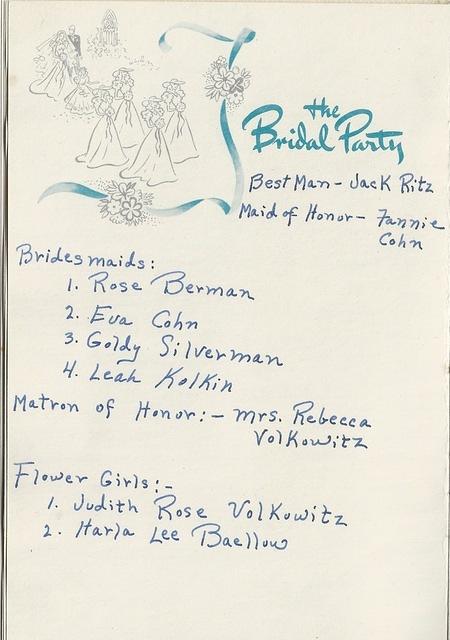 the
Bridal Party
Best Man - Jack Ritz
Maid of Honor - Fannie
Cohn
Bridesmaids:
1. Rose Berman
2. Eva Cohn
3. Goldy Silverman
4. Leah Kolkin
Matron of Honor:- Mrs. Rebecca
Volkowitz
Flower Girls:-
1. Judith Rose Volkowitz
2. Harla Lee